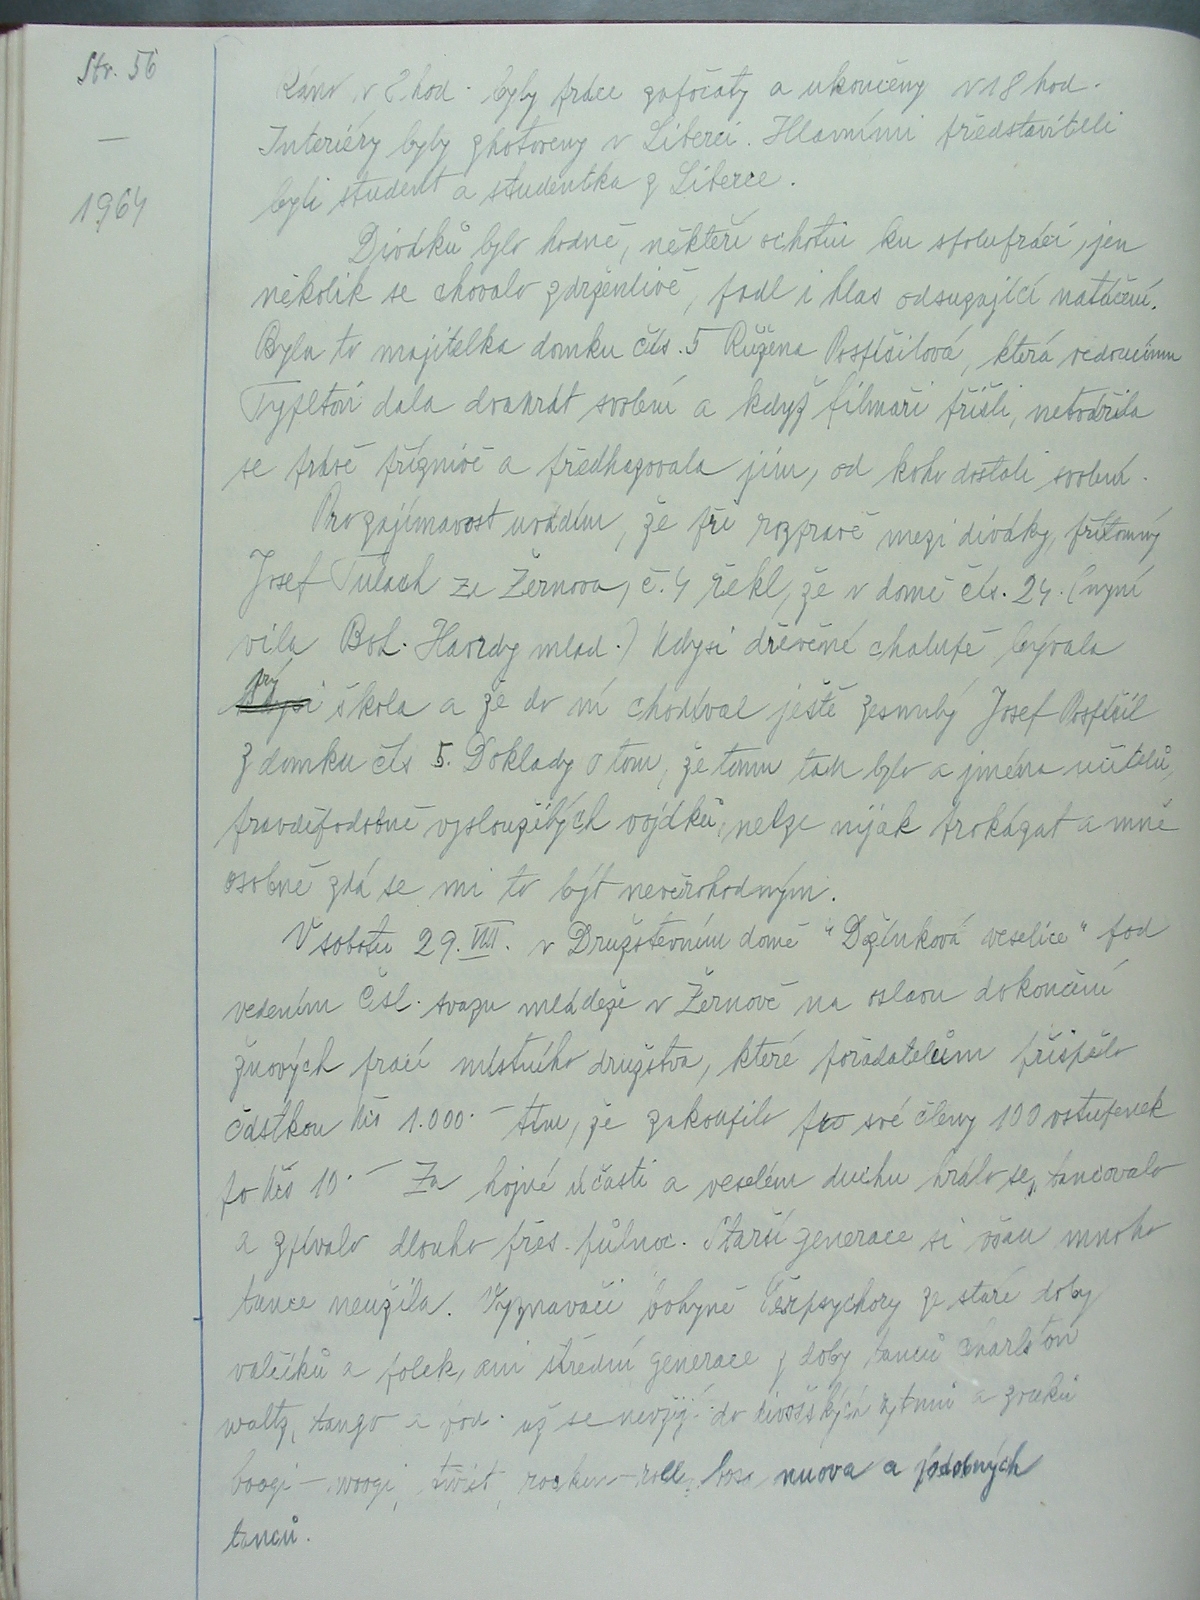 Str. 56
—
1964
Ráno v 8 hod. byly práce započaty a ukončeny v 18 hod.
Interiéry byly zhotoveny v Liberci. Hlavními představiteli
byli student a studentka z Liberce.
Diváků bylo hodně, někteří ochotni ku spolupráci, jen
několik se chovalo zdrženlivě, padl i hlas odsuzující natáčení.
Byla to majitelka domku čís. 5 Růžena Pospíšilová, která vedoucímu
Typltovi dala dvakrát svolení a když filmaři přišli, netvářila
se právě příznivě a předhazovala jim, od koho dostali svolení.
Pro zajímavost uvádím, že při rozpravě mezi diváky, přítomný
Josef Tulach ze Žernova, č. 4 řekl, že v domě čís. 24. (nyní
vila Boh. Havrdy mlad.) kdysi dřevěné chalupě bývala
prý škola a že do ní chodíval ještě zesnulý Josef Pospíšil
z domku čís 5. Doklady o tom, že tomu tak bylo a jména učitelů,
pravděpodobně vysloužilých vojáků, nelze nijak prokázat a mně
osobně zdá se mi to být nevěrohodným.
V sobotu 29. VIII. v Družstevním domě "Dožínková veselice" pod
vedením Čsl. svazu mládeže v Žernově na oslavu dokončení
žňových prací místního družstva, které pořadatelům přispělo
částkou Kčs 1.000.– tím, že zakoupilo pro své členy 100 vstupenek
po Kčs 10.– Za hojné účasti a veselém duchu hrálo se, tancovalo
a zpívalo dlouho přes půlnoc. Starší generace si však mnoho
tance neužila. Vyznavači bohyně Terpsychory ze staré doby
valčíků a polek, ani střední generace z doby tanců charlston
waltz, tango a pod. už se nevžijí do divošských rytmů a zvuků
boogi – woogi, twist, rocken-roll, bosa nuova a podobných
tanců.